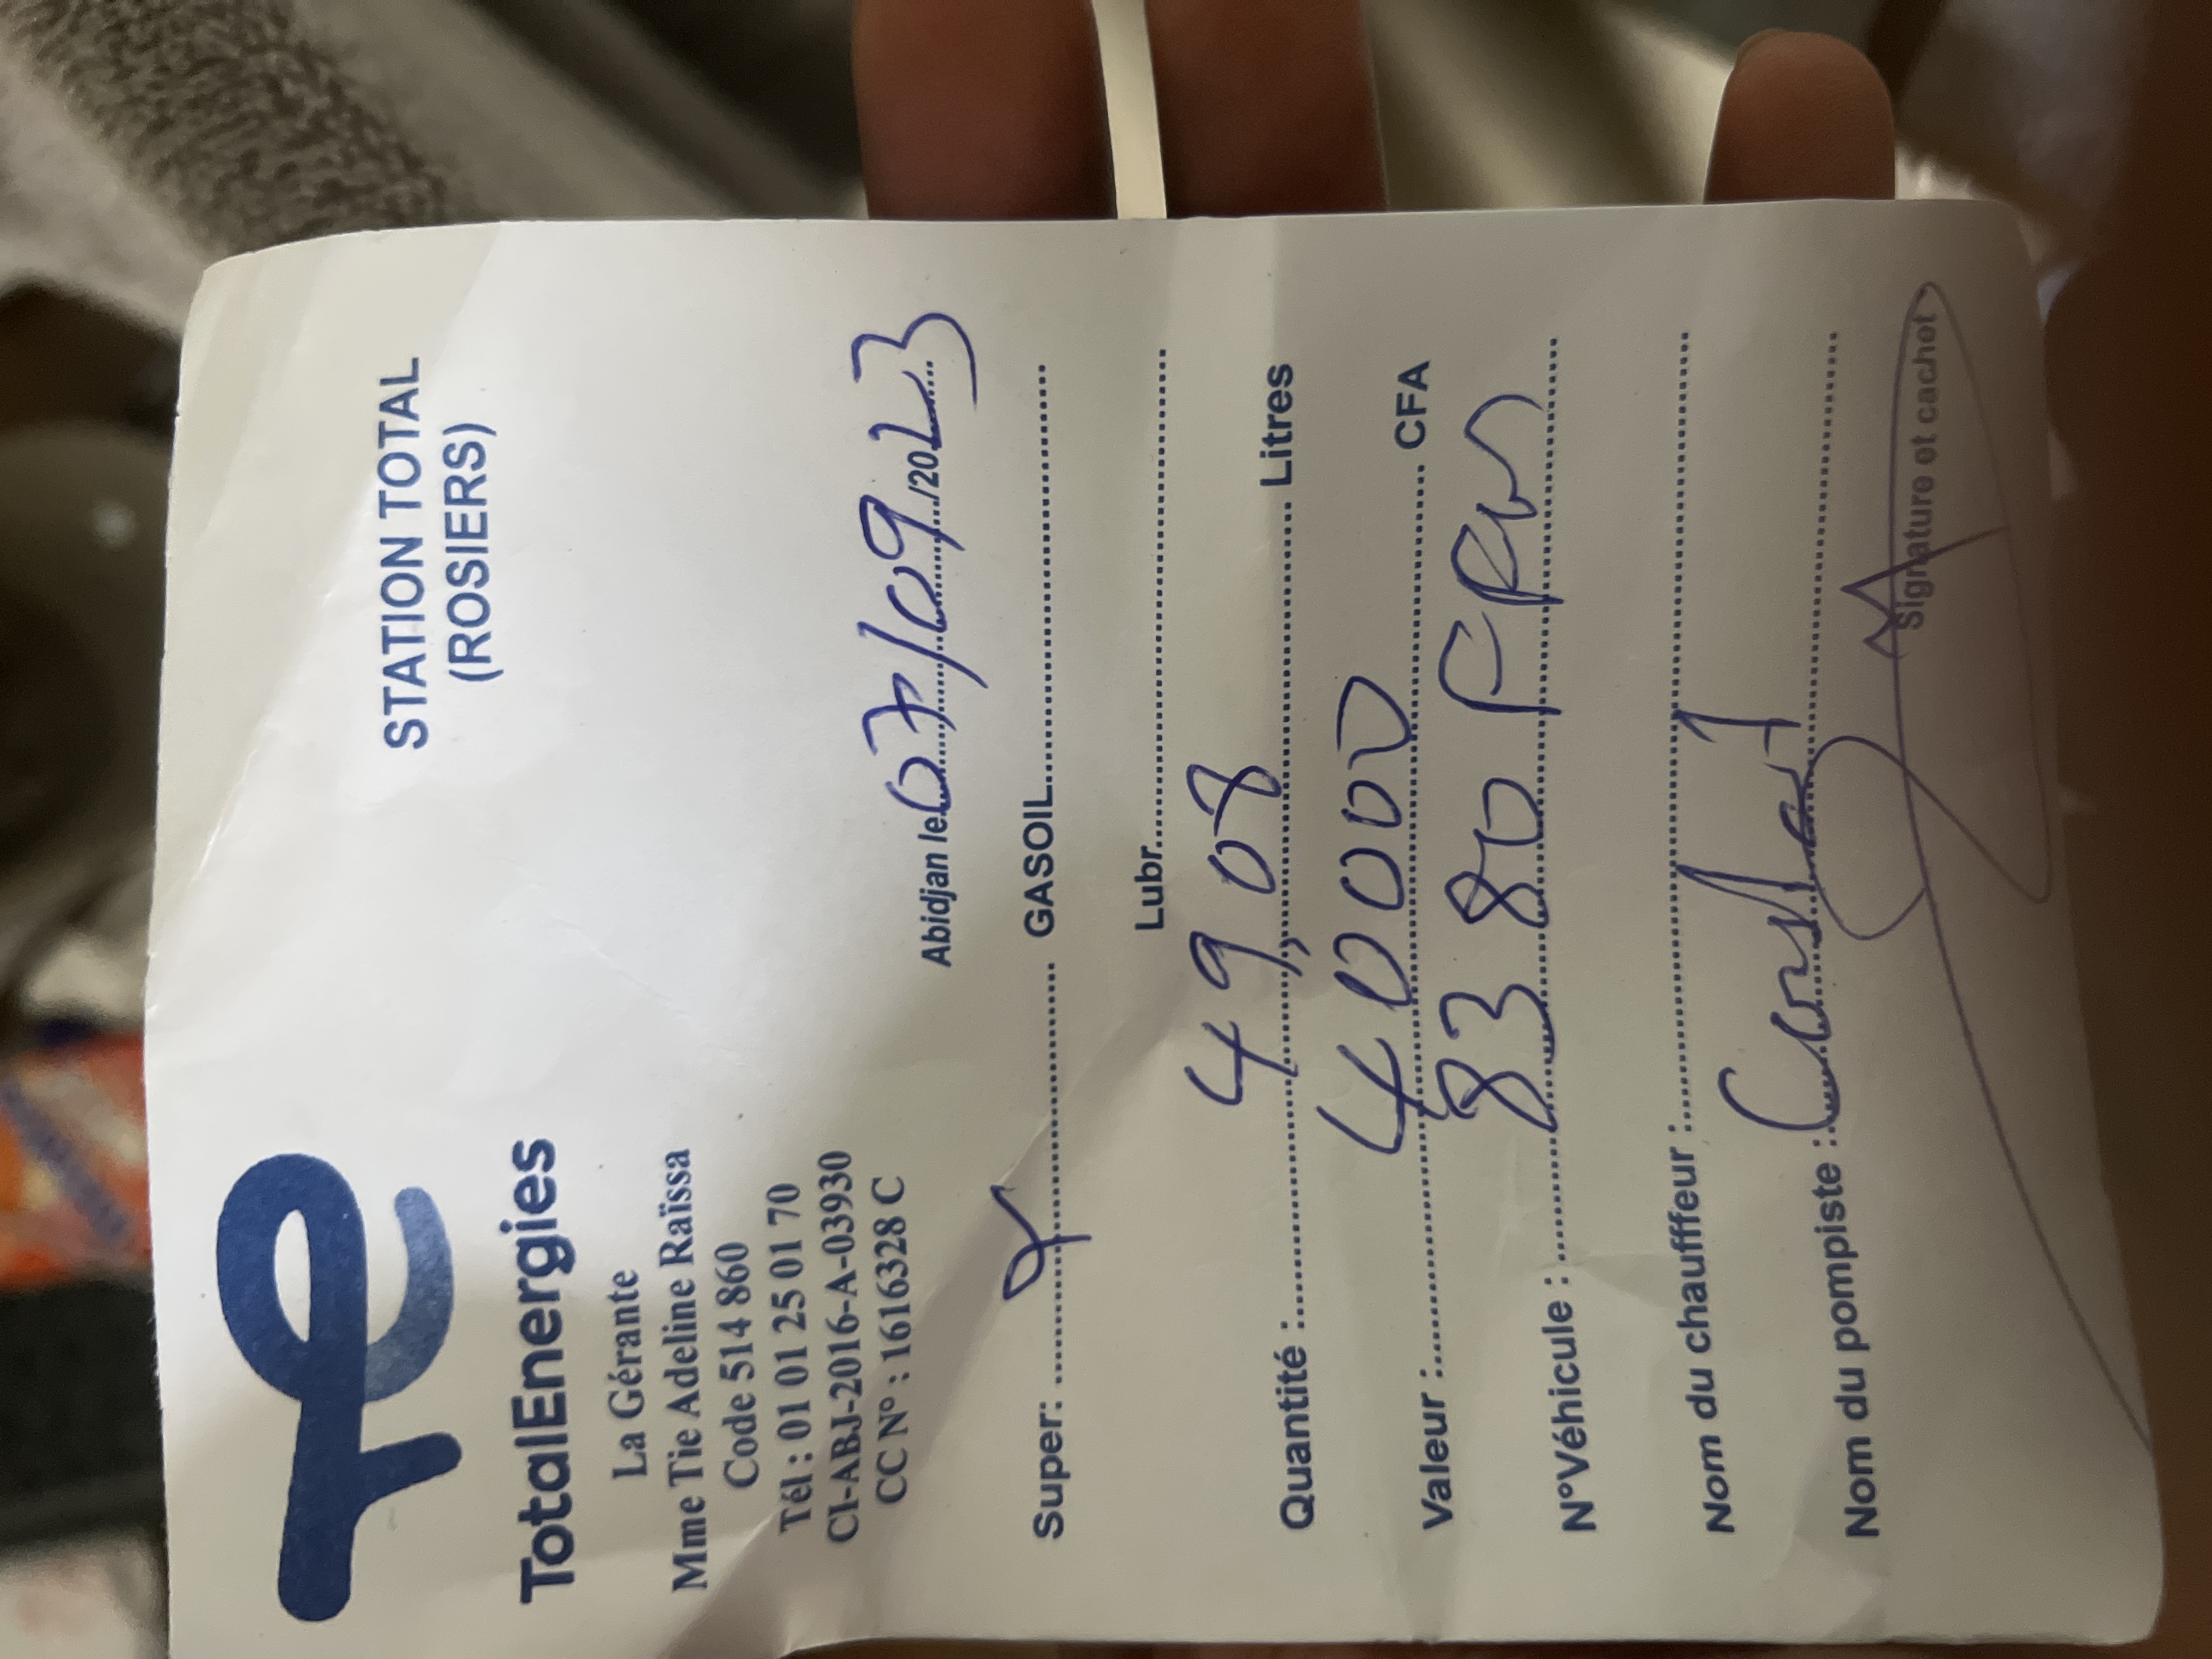 TotalEnergies
STATION TOTAL
(ROSIERS)
La Gérante
Mme Tie Adeline Raïssa
Code 514 860
Tél : 01 01 25 01 70
CI-ABJ-2016-A-03930
CC N° : 1616328 C
Abidjan le 07/09/2023
Super: GASOIL
Lubr
Quantité : 49,08 Litres
Valeur : 40000 CFA
N°Véhicule : 8380 F
Nom du chaufffeur :
Nom du pompiste : Constant
Signature et cachet